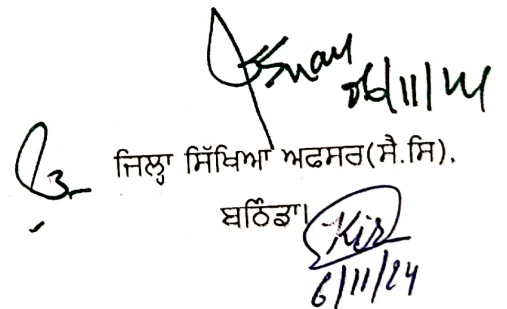 06/11/24
ਜਿਲ੍ਹਾ ਸਿੱਖਿਆ ਅਫਸਰ(ਸੈ.ਸਿ).
ਬਠਿੰਡਾ।
6/11/24